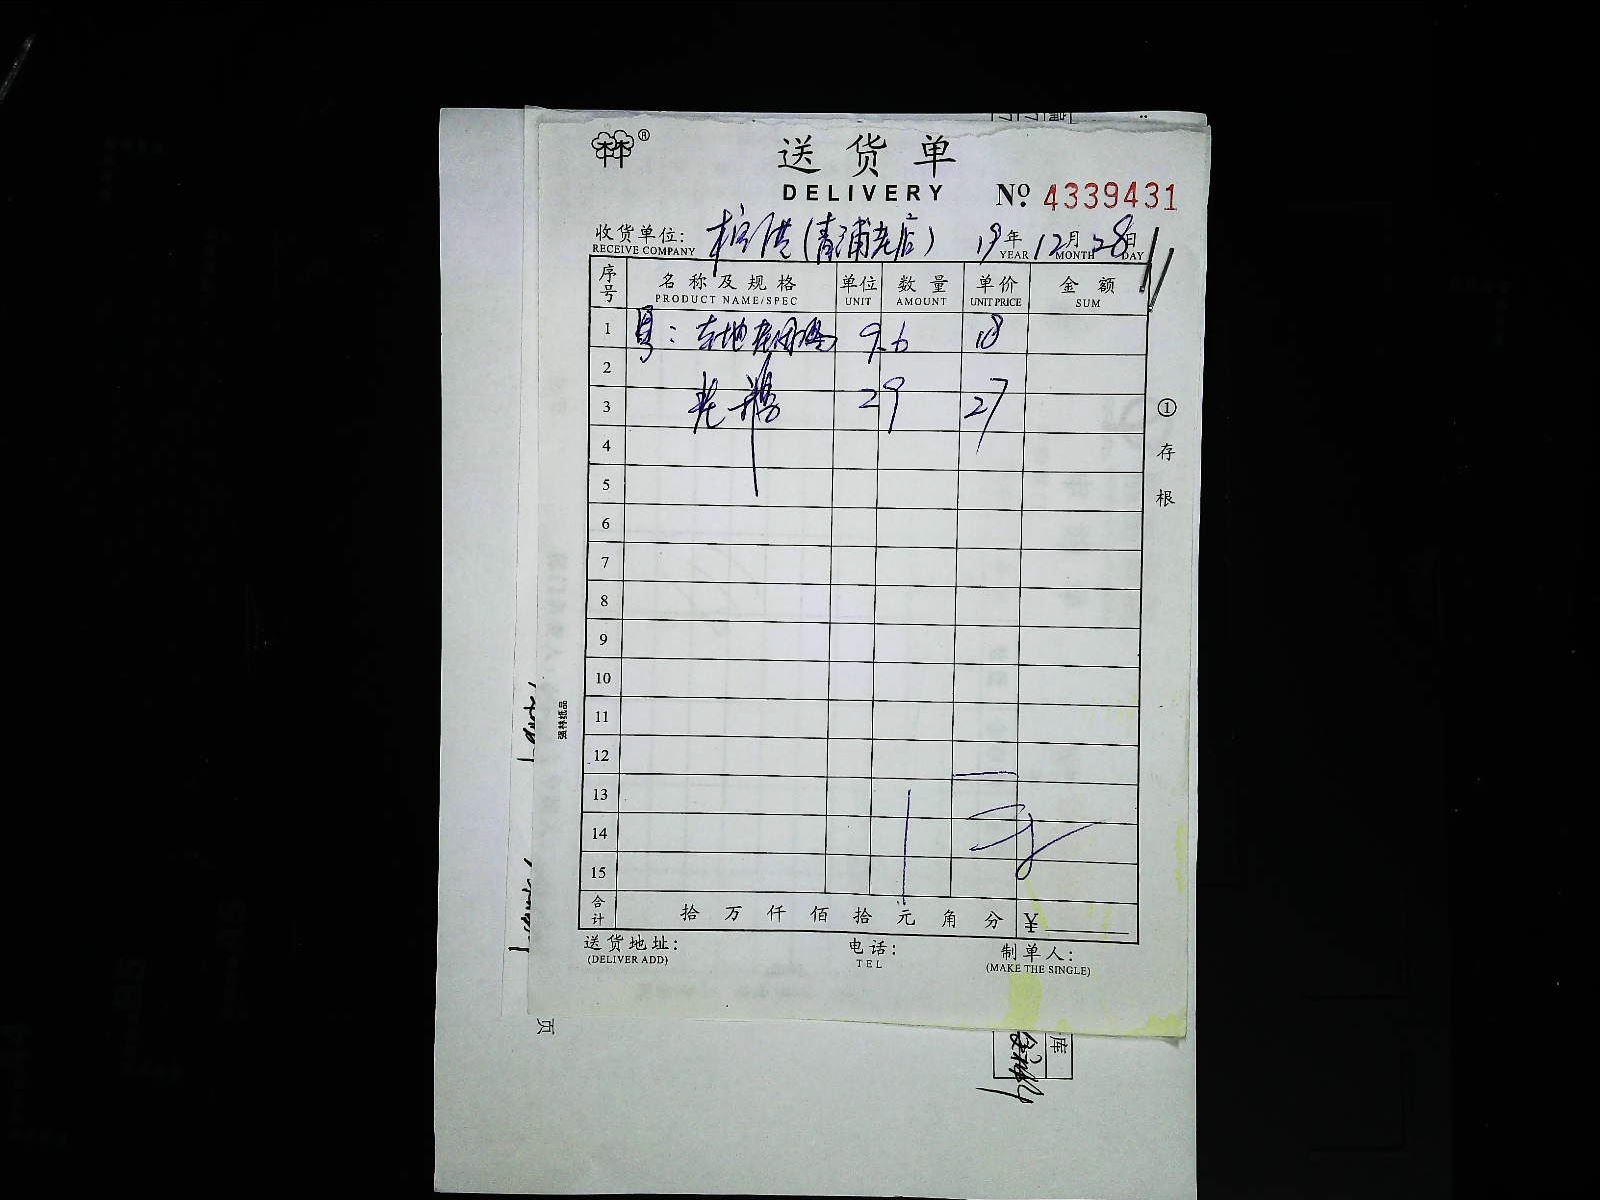 ®
送货单
DELIVERY
Nº 4339431
收货单位: (青浦老店) 19年12月28日
RECEIVE COMPANY YEAR MONTH DAY
序号 名称及规格 单位 数量 单价 金额
PRODUCT NAME/SPEC UNIT AMOUNT UNIT PRICE SUM
1 9.6 18
2
3 29 27
4
5
6
7
8
9
10
11
12
13
14
15
合计 拾 万 仟 佰 拾 元 角 分 ¥
送货地址: 电话: 制单人:
(DELIVER ADD) TEL (MAKE THE SINGLE)
①存根
强林纸品
页
库